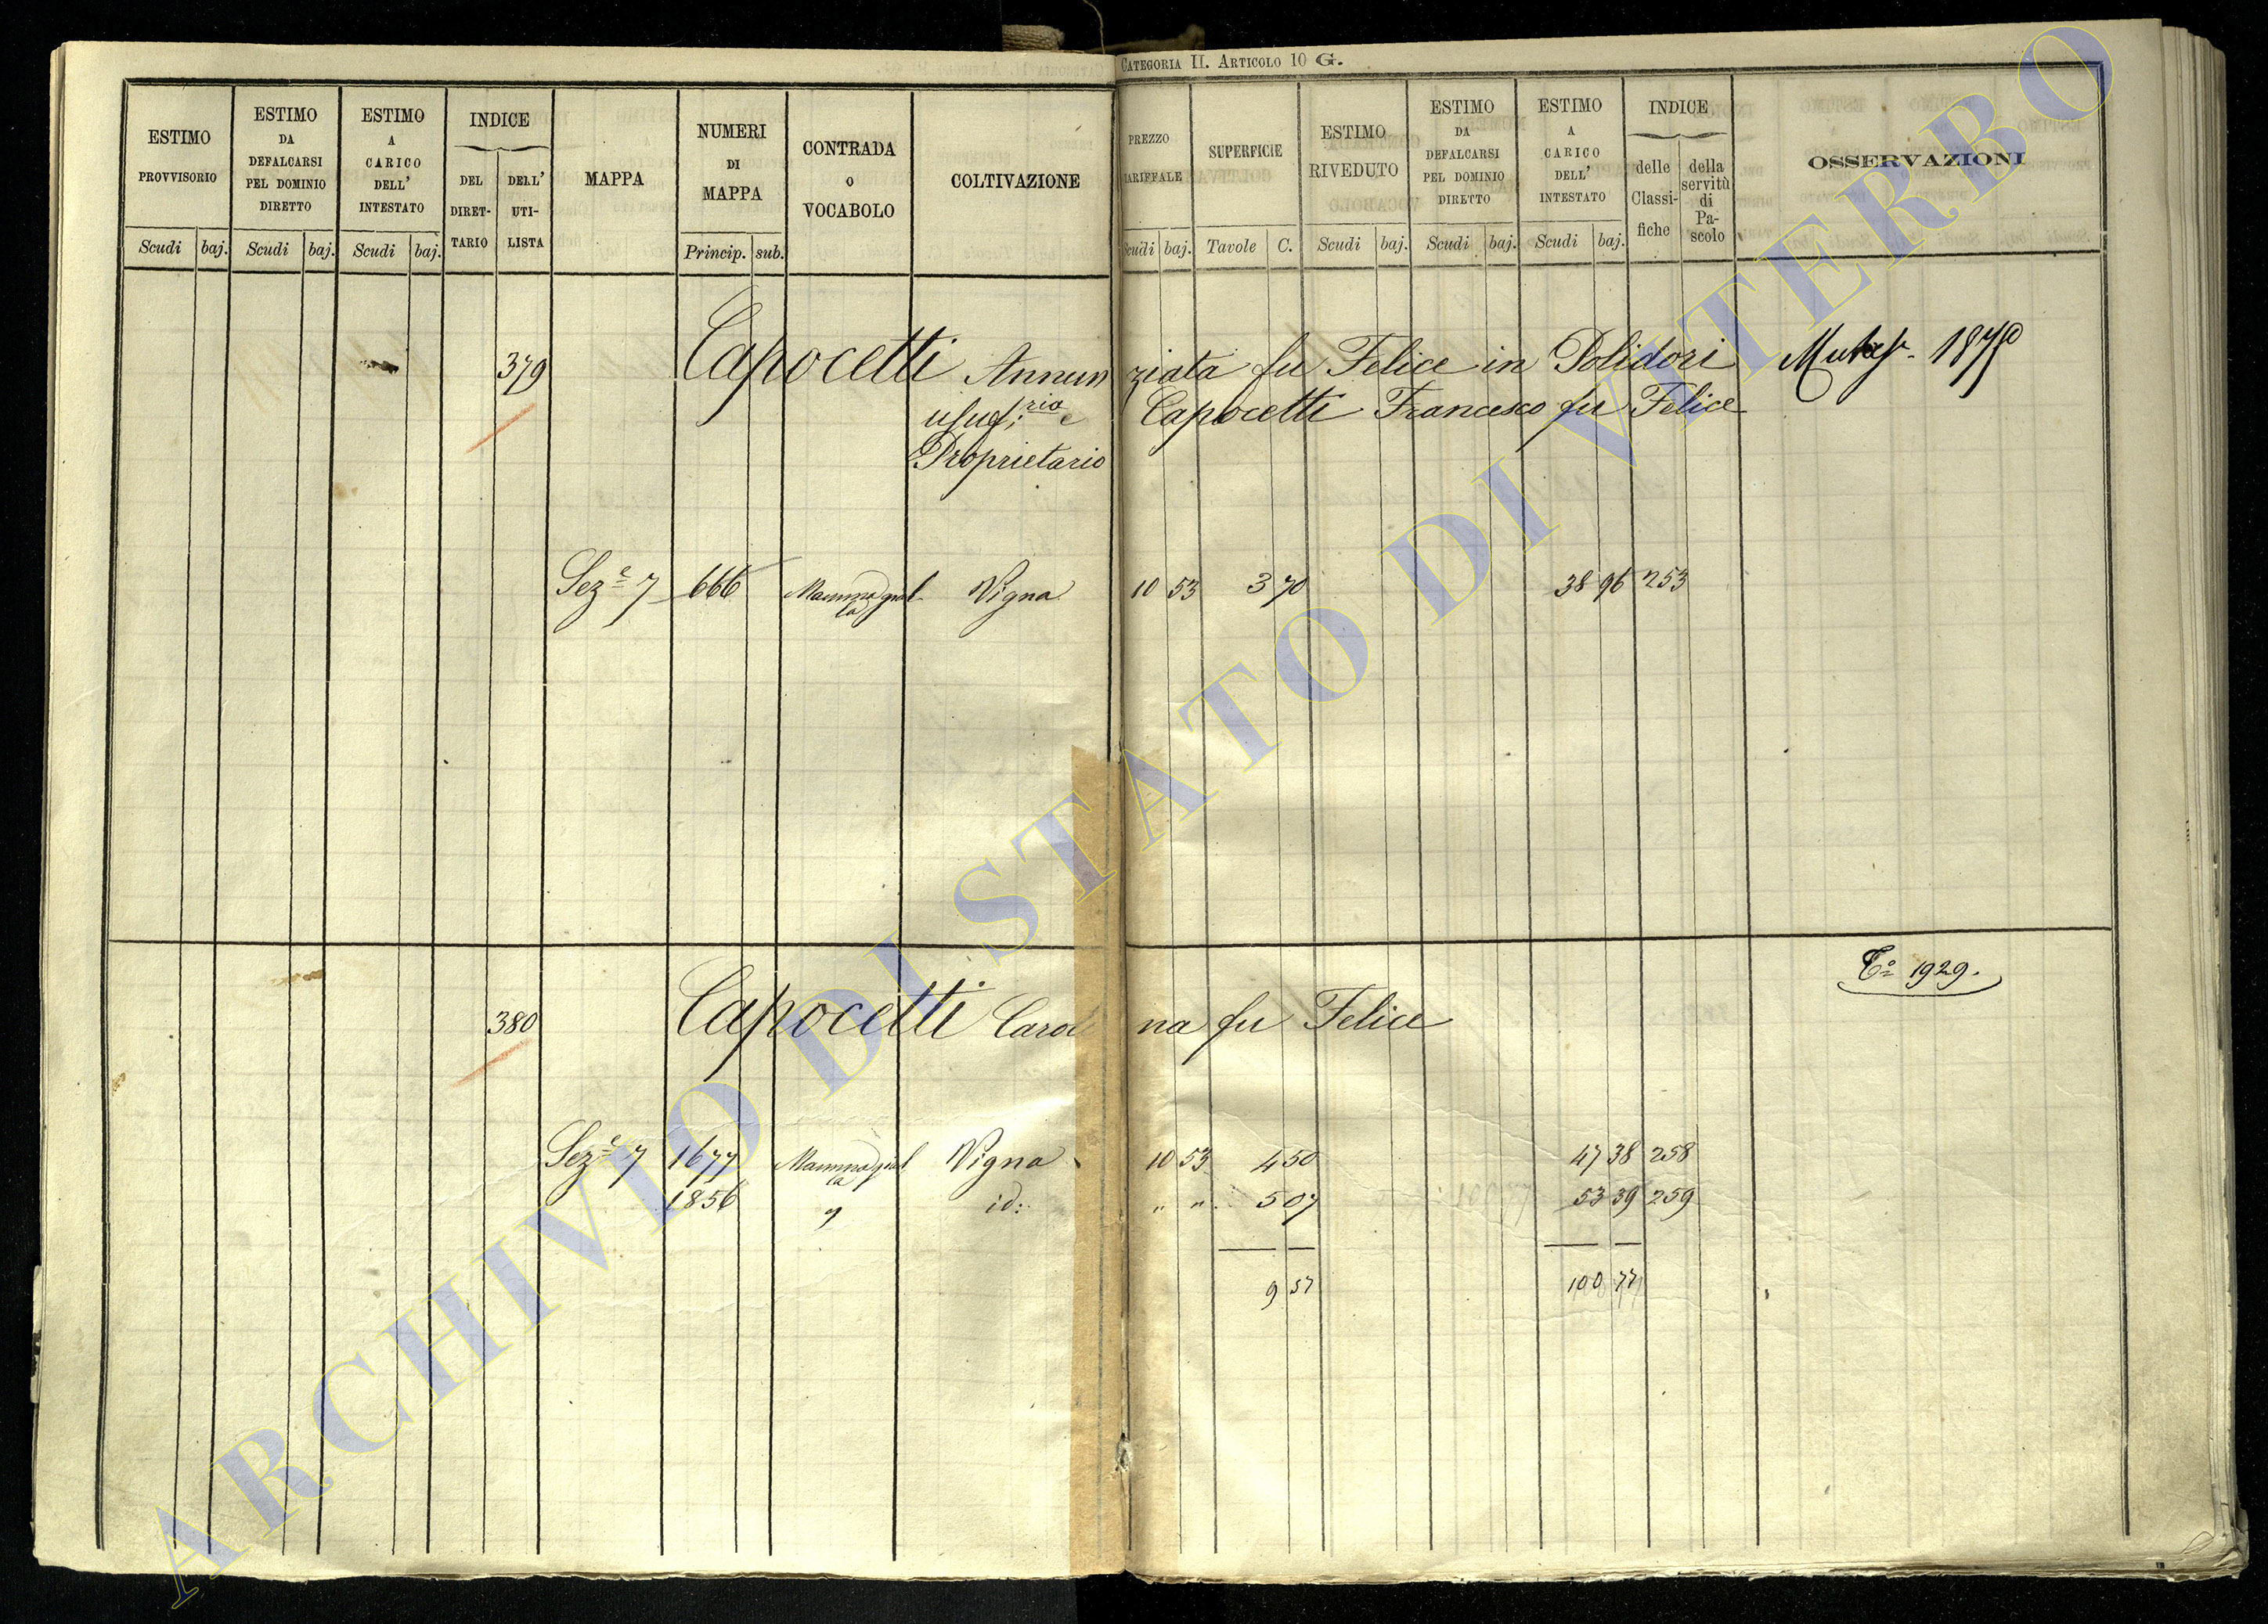 CATEGORIA II. ARTICOLO 10 G.
ESTIMO PROVVISORIO
Scudi baj.
ESTIMO DA DEFALCARSI PEL DOMINIO DIRETTO
Scudi baj.
ESTIMO A CARICO DELL' INTESTATO
Scudi baj.
INDICE
DEL DIRET-TARIO
DELL' UTI-LISTA
MAPPA
NUMERI DI MAPPA
Princip. sub.
CONTRADA O VOCABOLO
COLTIVAZIONE
PREZZO TARIFFALE
Scudi baj.
SUPERFICIE
Tavole C.
ESTIMO RIVEDUTO
Scudi baj.
ESTIMO DA DEFALCARSI PEL DOMINIO DIRETTO
Scudi baj.
ESTIMO A CARICO DELL' INTESTATO
Scudi baj.
INDICE
delle Classi-fiche
della servitù di Pa-scolo
OSSERVAZIONI
379 Capocetti Annunziata fu Felice in Polidori
usuf:ria e Capocetti Francesco fu Felice
Proprietario
Sez.e 7 666 Vigna 10 53 3 70 38 96 253
Co 1929.
380 Capocetti Carolina fu Felice
Sez.e 7 1677 Vigna 10 53 4 50 47 38 258
1856 " id: " " 5 07 53 39 259
9 57 100 77
ARCHIVIO DI STATO DI VITERBO